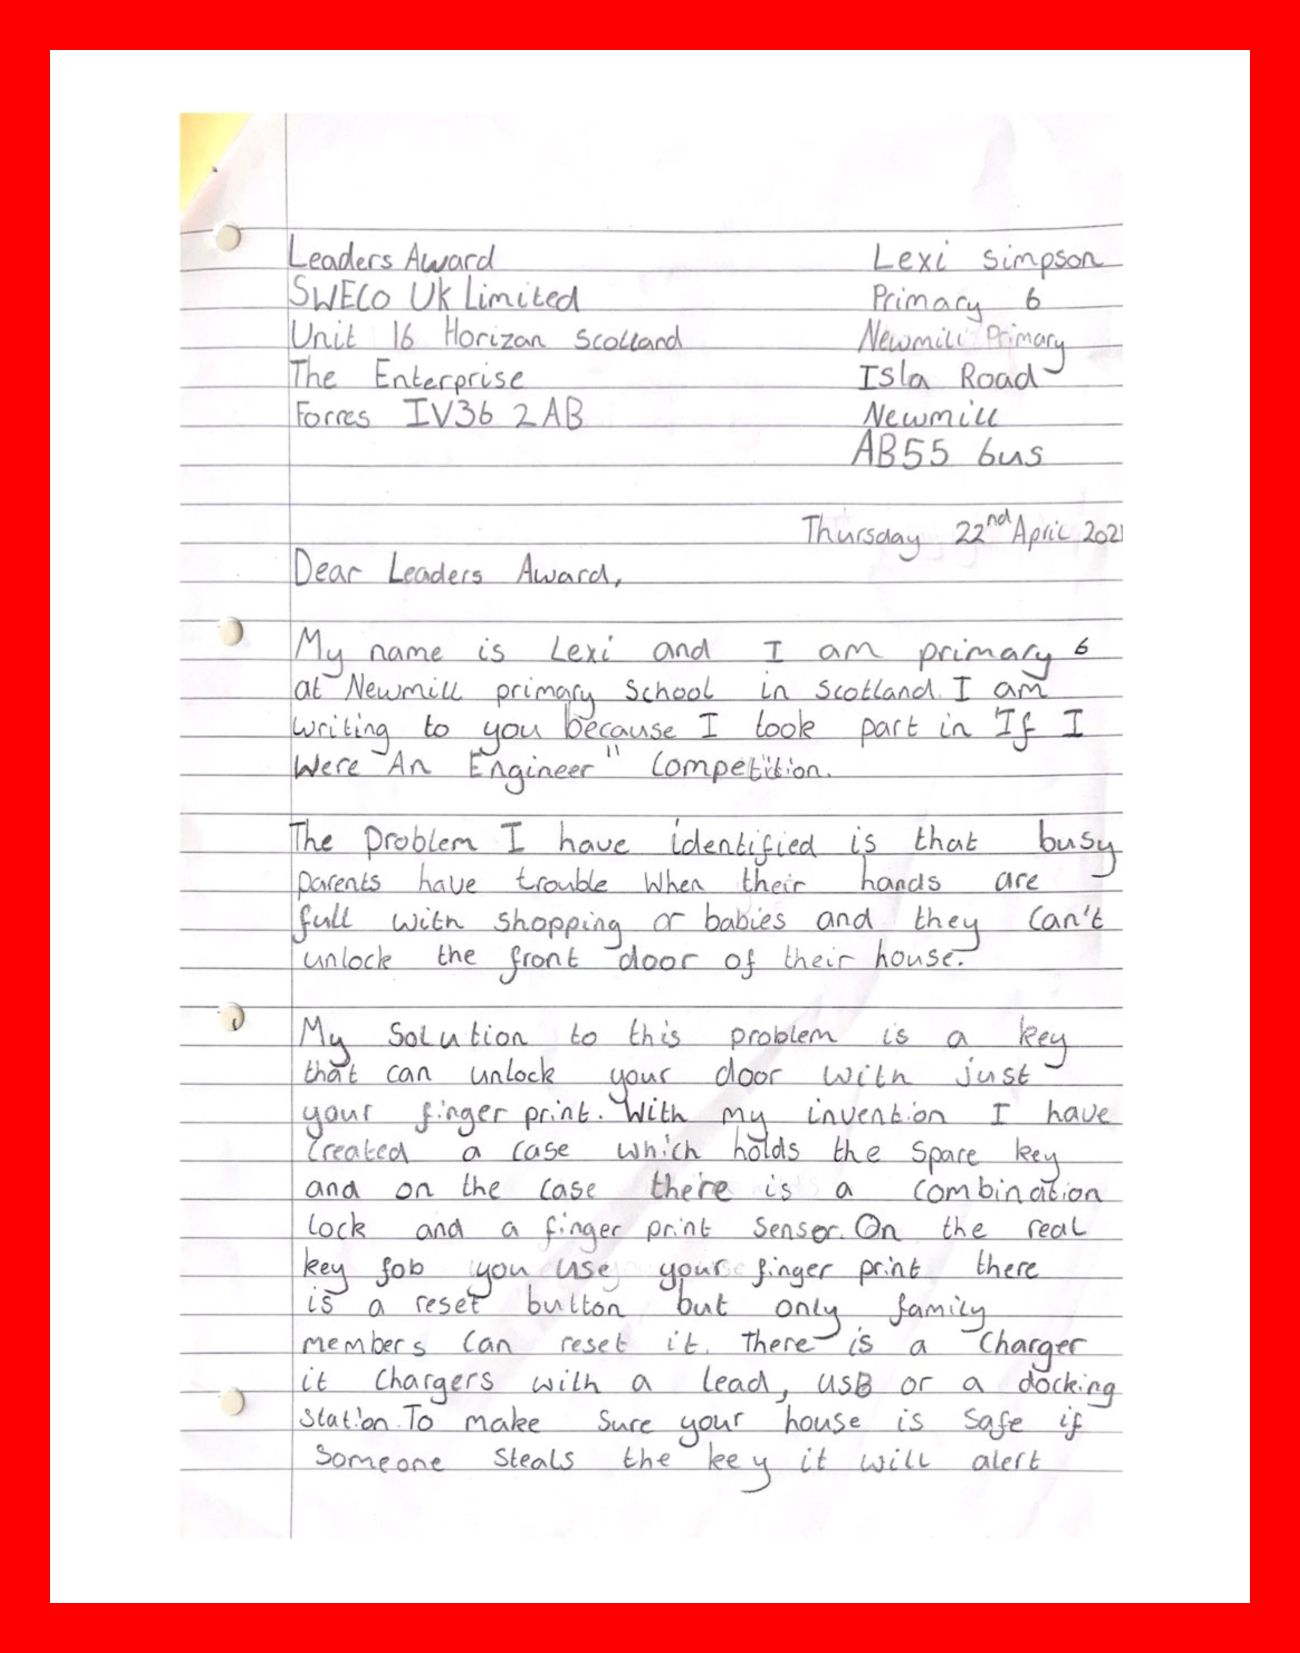 Leaders Award
SWECO UK Limited
Unit 16 Horizan Scotland
The Enterprise
Forres IV36 2AB
Lexi Simpson
Primary 6
Newmill Primary
Isla Road
Newmill
AB55 6us
Thursday 22nd April 2021
Dear Leaders Award,
My name is Lexi and I am primary 6
at Newmill primary school in Scotland. I am
writing to you because I took part in "If I
Were An Engineer" Competition.
The problem I have identified is that busy
parents have trouble when their hands are
full with shopping or babies and they can't
unlock the front door of their house.
My solution to this problem is a key
that can unlock your door with just
your finger print. With my invention I have
created a case which holds the spare key
and on the case there is a combination
lock and a finger print sensor. On the real
key fob you use your finger print there
is a reset button but only family
members can reset it. There is a charger
it chargers with a lead, USB or a docking
station. To make sure your house is safe if
someone steals the key it will alert